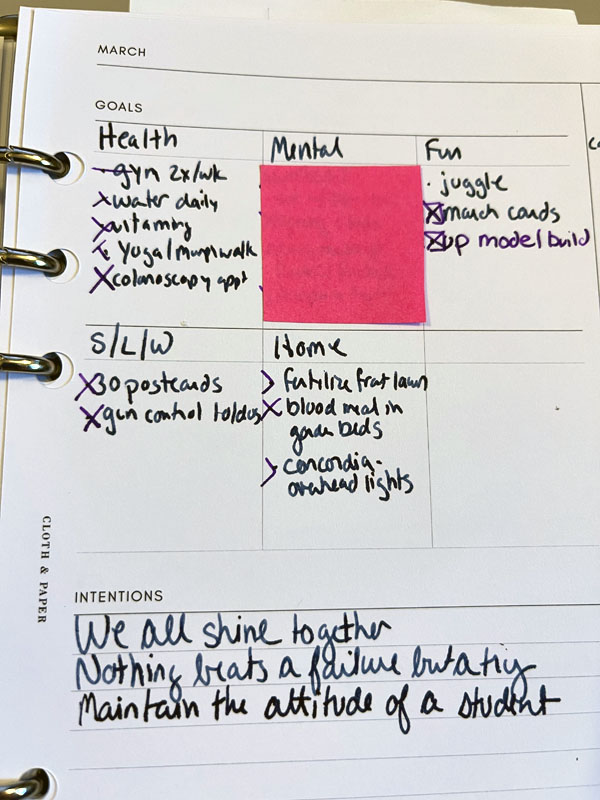 MARCH
GOALS
Health
gyn 2x/wk
water daily
vitamins
Yoga/ walk
colonoscopy appt
Mental
Fun
juggle
march cards
up model build
S/L/W
30 postcards
gun control
Home
fertilize front lawn
blood meal in
garden beds
concordia-
overhead lights
CLOTH & PAPER
INTENTIONS
We all shine together
Nothing beats a failure but a try
Maintain the attitude of a student